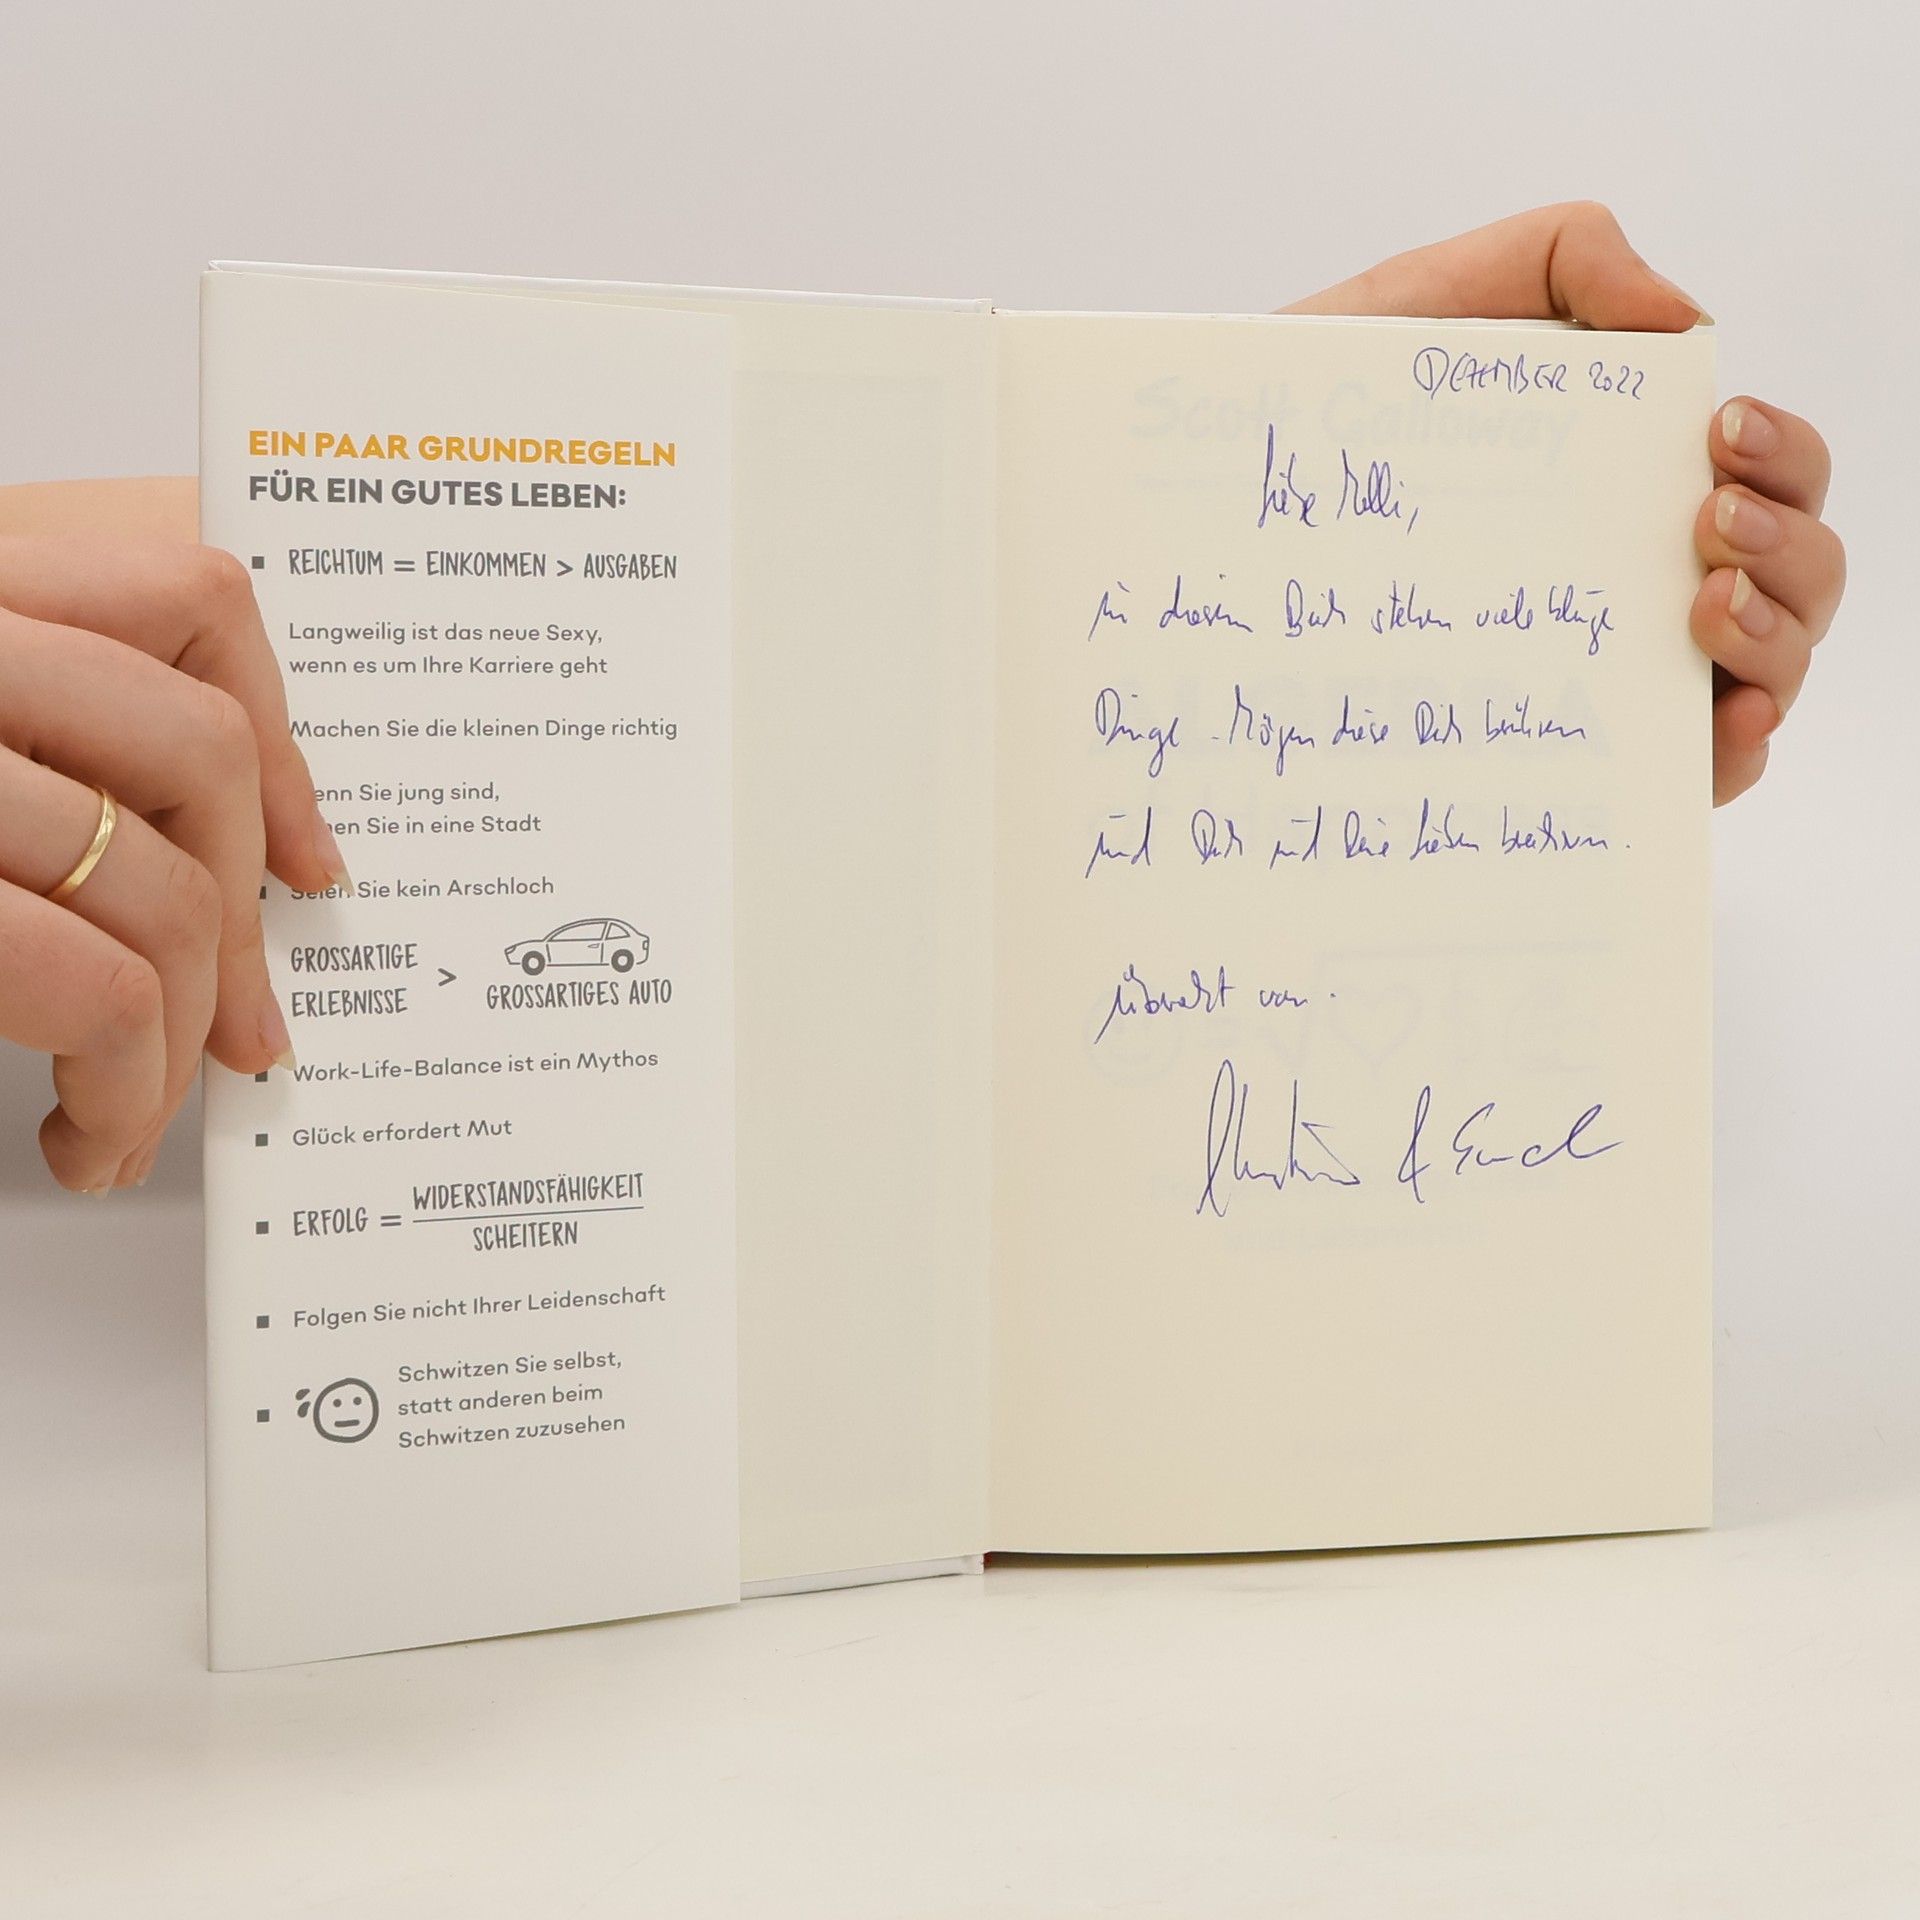 EIN PAAR GRUNDREGELN
FÜR EIN GUTES LEBEN:
REICHTUM = EINKOMMEN > AUSGABEN
Langweilig ist das neue Sexy,
wenn es um Ihre Karriere geht
Machen Sie die kleinen Dinge richtig
enn Sie jung sind,
en Sie in eine Stadt
Seien Sie kein Arschloch
GROSSARTIGE
ERLEBNISSE
>
GROSSARTIGES AUTO
Work-Life-Balance ist ein Mythos
Glück erfordert Mut
ERFOLG =
WIDERSTANDSFÄHIGKEIT
SCHEITERN
Folgen Sie nicht Ihrer Leidenschaft
Schwitzen Sie selbst,
statt anderen beim
Schwitzen zuzusehen
DEZEMBER 2022
Scott Galloway
Liebe Melli,
in diesem Buch stehen viele kluge
Dinge. Mögen diese Dich berühren
und Dich und Deine Lieben bereichern.
überreicht von